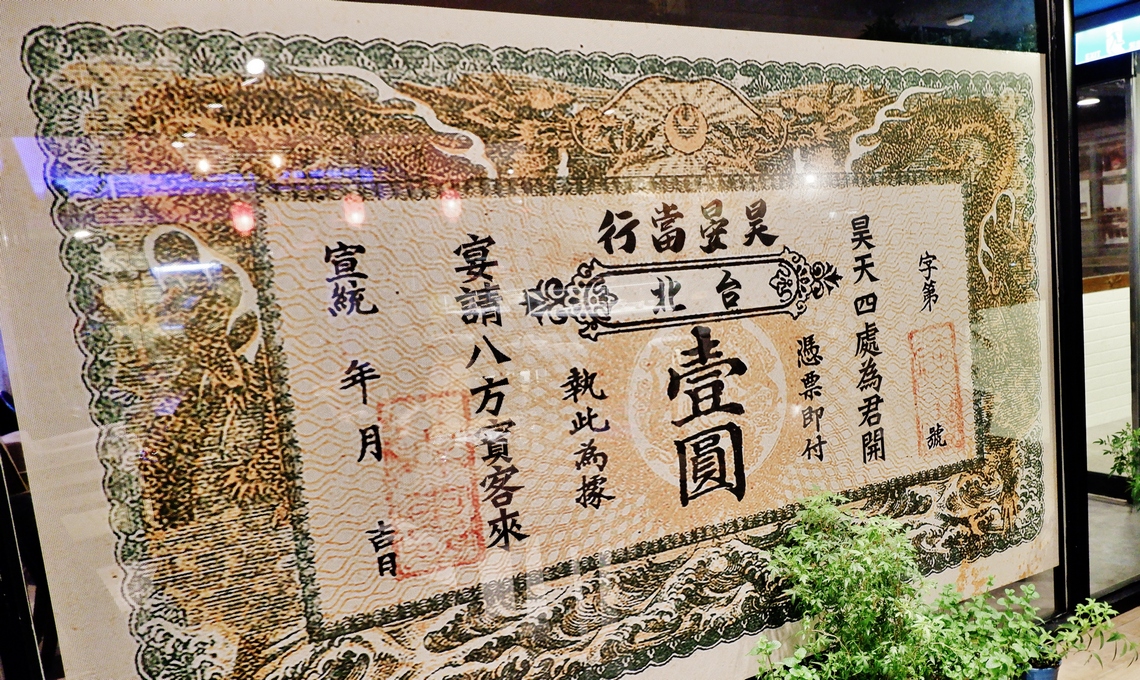 字第 號
昊天四處為君開
憑票即付
昊晏當行
台北
壹圓
執此為據
宴請八方賓客來
宣統 年 月 吉日